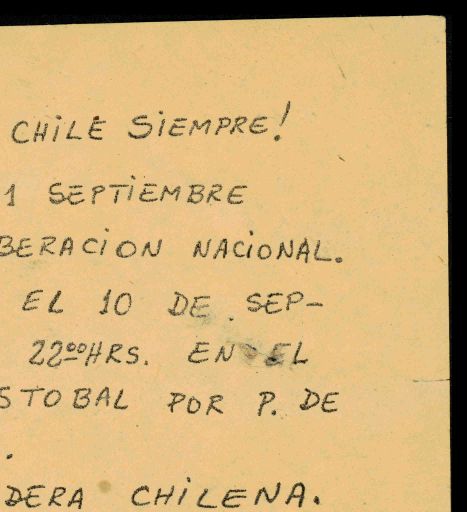 CHILE SIEMPRE!
1 SEPTIEMBRE
BERACION NACIONAL.
EL 10 DE SEP-
22ººHRS. EN EL
STOBAL POR P. DE
.
DERA CHILENA.